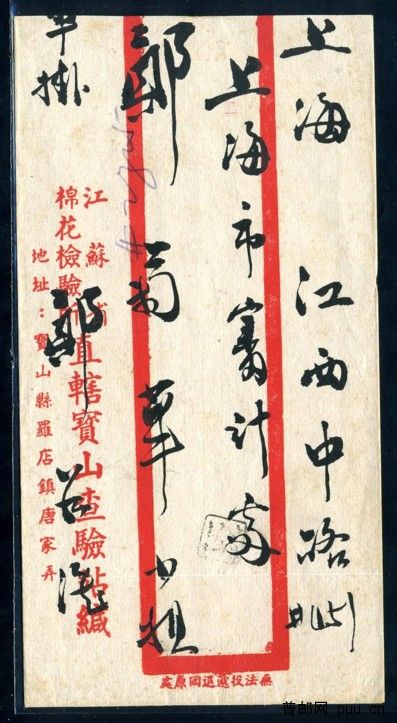 上海 江西中路
上海市審計處
華小姐
單掛
江蘇省
棉花檢驗所
直轄寶山查驗站緘
地址：寶山縣羅店鎮唐家弄
無法投遞退回原處
普邮网 puu.cn